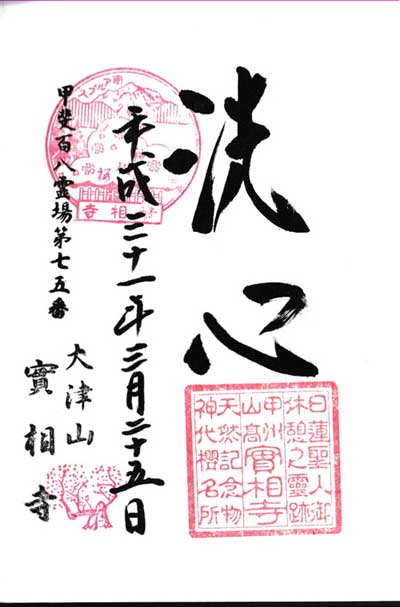 洗心
日蓮聖人御
休憩之靈跡
甲州實相寺
山高
天然記念物
神代櫻名所
南アルプス
實相寺
平成三十一年三月二十五日
甲斐百八霊場第七五番
大津山
實相寺